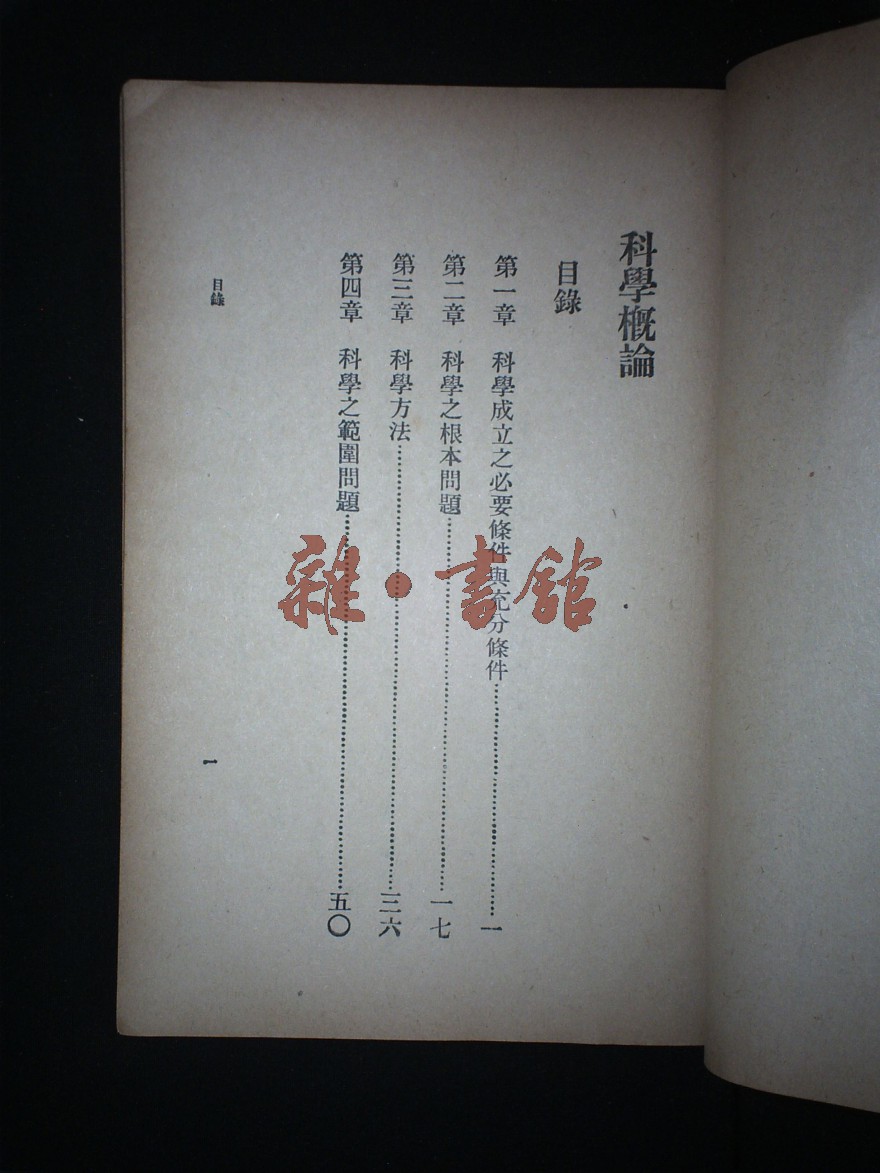 科學概論
目錄
第一章 科學成立之必要條件與充分條件……一
第二章 科學之根本問題……一七
第三章 科學方法……三六
第四章 科學之範圍問題……五〇
目錄
一
雜·書館